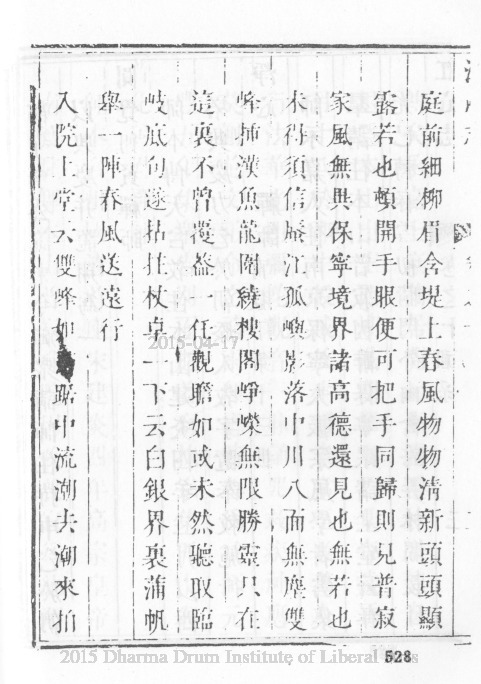 庭前細柳眉含堤上春風物物清新頭頭顯
露若也頓開手眼便可把手同歸則見普寂
家風無異保寧境界諸高德還見也無若也
未得須信蜃江孤嶼影落中川八面無塵雙
峰插漢魚龍圍繞樓閣崢嶸無限勝靈只在
這裏不曾覆葢一任觀瞻如或未然聽取臨
岐底句遂拈拄杖卓一下云白銀界裏蒲帆
舉一陣春風送遠行
入院上堂云雙峰如踞中流潮去潮來拍
2015-04-17
2015 Dharma Drum Institute of Liberal
528